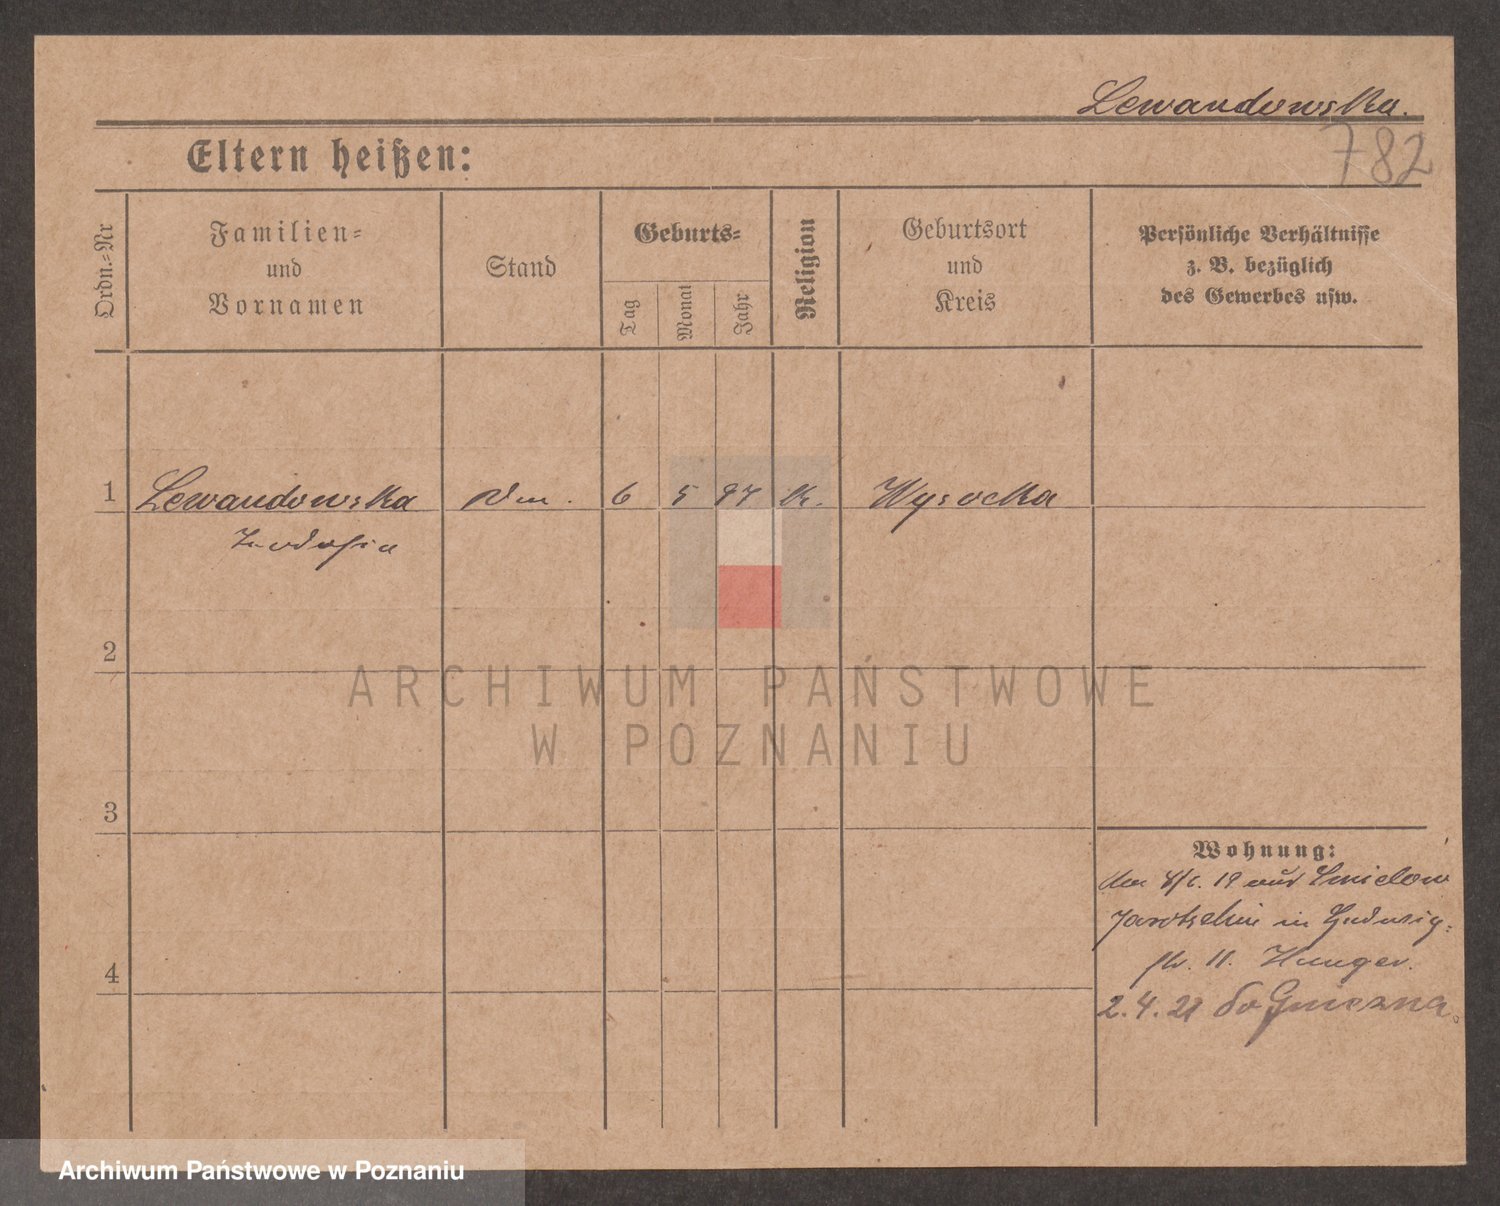 Lewandowska.
782
Eltern heißen:
Ordn.=Nr
Familien=
und
Vornamen
Stand
Geburts=
Tag
Monat
Jahr
Religion
Geburtsort
und
Kreis
Persönliche Verhältnisse
z. B. bezüglich
des Gewerbes usw.
1 Lewandowska 6 5 97 K. Wysocka
2
ARCHIWUM PAŃSTWOWE
W POZNANIU
3
Wohnung:
19 aus Smielow
Jarotschin in Ludwig=
str. 11.
4
2.4.21 do Gniezna.
Archiwum Państwowe w Poznaniu